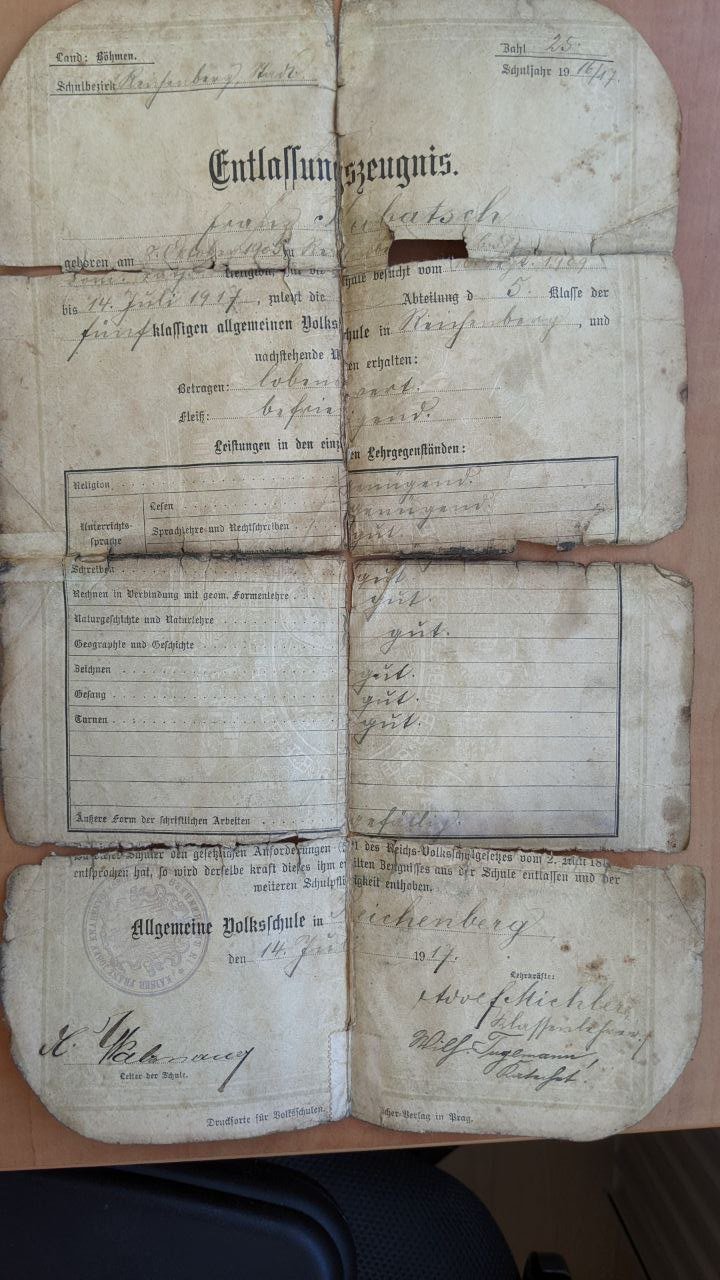 Land: Böhmen.
Zahl 25.
Schulbezirk Reichenberg, Stadt
Schuljahr 1916/17.
Entlassungszeugnis.
Franz Kubatsch
geboren am 8. October 1903 in
Religion, hat die Schule besucht vom Sept. 1909
bis 14. Juli 1917, zuletzt die Abteilung d 5. Klasse der
fünfklassigen allgemeinen Volksschule in Reichenberg, und
nachstehende en erhalten:
Betragen: lobenswert.
Fleiß: befriedigend.
Leistungen in den einzelnen Lehrgegenständen:
Religion genügend.
Unterrichts-sprache
Lesen genügend.
Sprachlehre und Rechtschreiben gut.
Schreiben gut.
Rechnen in Verbindung mit geom. Formenlehre gut.
Naturgeschichte und Naturlehre gut.
Geographie und Geschichte
Zeichnen gut.
Gesang gut.
Turnen gut.
Äußere Form der schriftlichen Arbeiten gefällig.
Schüler den gesetzlichen Anforderungen des Reichs-Volksschulgesetzes vom 2. Mai
entsprochen hat, so wird derselbe kraft dieses ihm erteilten Zeugnisses aus der Schule entlassen und der
weiteren Schulpflichtigkeit enthoben.
Allgemeine Volksschule in Reichenberg,
den 14. Juli 1917.
Lehrkräfte:
Adolf Michler
Klassenlehrer.
Wilh.
Katechet.
Leiter der Schule.
KAISER FRANZ JOSEF
Drucksorte für Volksschulen.
cher-Verlag in Prag.